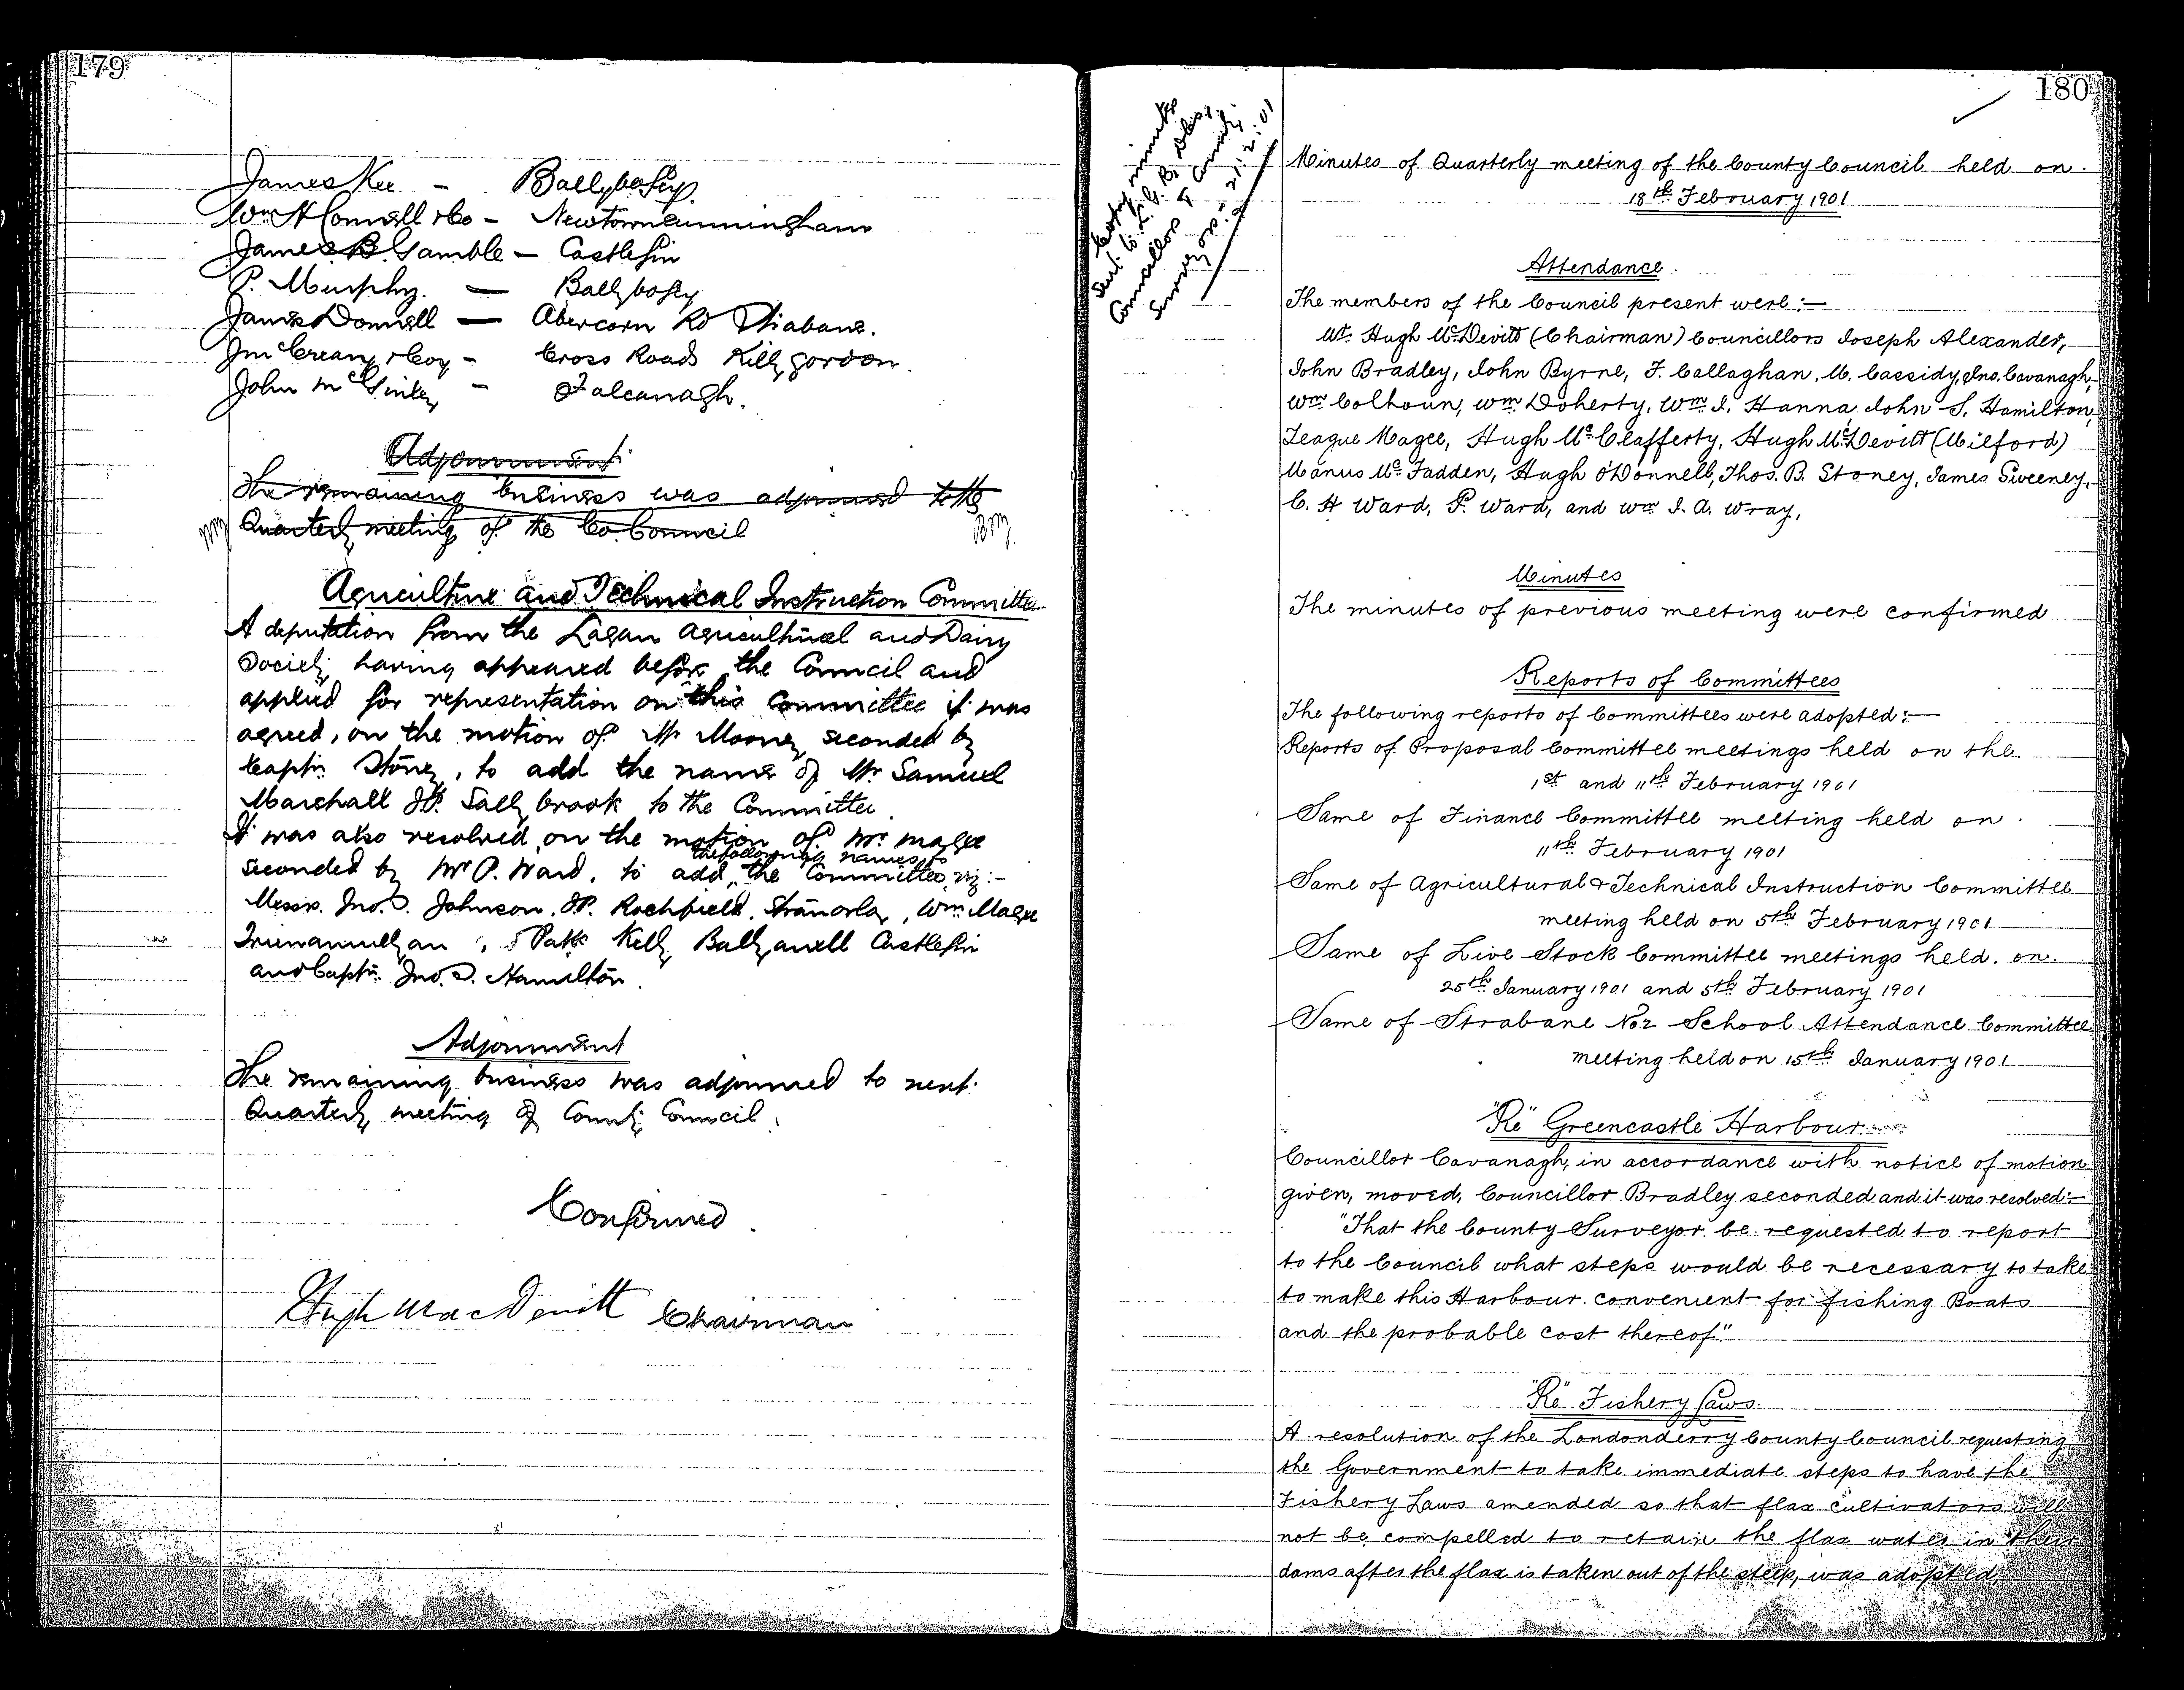 179
James Kee - Ballybofey
Wm H Connell & Co - Newtowncunningham
James B. Gamble - Castlefin
P. Murphy. - Ballybofey
James Donnell - Abercorn Rd Strabane.
Jm Crean & Coy - Cross Roads Killygordon.
John McGinley - Falcanagh.
Adjournment
The remaining business was adjourned to the
Quarterly meeting of the Co. Council
Agriculture and Technical Instruction Committee
A deputation from the Lagan Agricultural and Dairy
Society having appeared before the Council and
applied for representation on this Committee it was
agreed, on the motion of Mr Mooney seconded by
Captn. Stoney, to add the name of Mr Samuel
Marshall J.P. Sallybrook to the Committee.
It was also resolved, on the motion of Mr. Magee
seconded by Mr P. Ward, to add the following names to the Committee, viz:-
Messrs. Jno. S. Johnson. J.P. Rochfield. Stranorlar, Wm Magee
, Patk Kelly Ballyanell Castlefin
and Captn. Jno. S. Hamilton.
Adjournment
The remaining business was adjourned to next
Quarterly meeting of County Council.
Confirmed.
Hugh MacDevitt Chairman
180
Copy minutes
sent to L. G. Bd,
Councillors & County
Surveyors. 21:2:01
Minutes of Quarterly meeting of the County Council held on
18th February 1901
Attendance.
The members of the Council present were:—
Mr. Hugh McDevitt (Chairman) Councillors Joseph Alexander,
John Bradley, John Byrne, F. Callaghan, M. Cassidy, Jno. Cavanagh,
Wm Colhoun, Wm Doherty, Wm J. Hanna, John S. Hamilton,
Teague Magee, Hugh McClafferty, Hugh McDevitt (Milford)
Manus McFadden, Hugh O'Donnell, Thos. B. Stoney, James Sweeney,
C. H Ward, P. Ward, and Wm J. A. Wray,
Minutes
The minutes of previous meeting were confirmed
Reports of Committees
The following reports of Committees were adopted:—
Reports of Proposal Committee meetings held on the
1st and 11th February 1901
Same of Finance Committee meeting held on
11th February 1901
Same of Agricultural & Technical Instruction Committee
meeting held on 5th February 1901
Same of Live Stock Committee meetings held on
25th January 1901 and 5th February 1901
Same of Strabane No 2 School Attendance Committee
meeting held on 15th January 1901
"Re" Greencastle Harbour
Councillor Cavanagh, in accordance with notice of motion
given, moved, Councillor Bradley seconded and it was resolved:—
"That the County Surveyor be requested to report
to the Council what steps would be necessary to take
to make this Harbour convenient for fishing Boats
and the probable cost thereof."
"Re" Fishery Laws.
A resolution of the Londonderry County Council requesting
the Government to take immediate steps to have the
Fishery Laws amended so that flax cultivators will
not be compelled to retain the flax water in their
dams after the flax is taken out of the steep, was adopted,